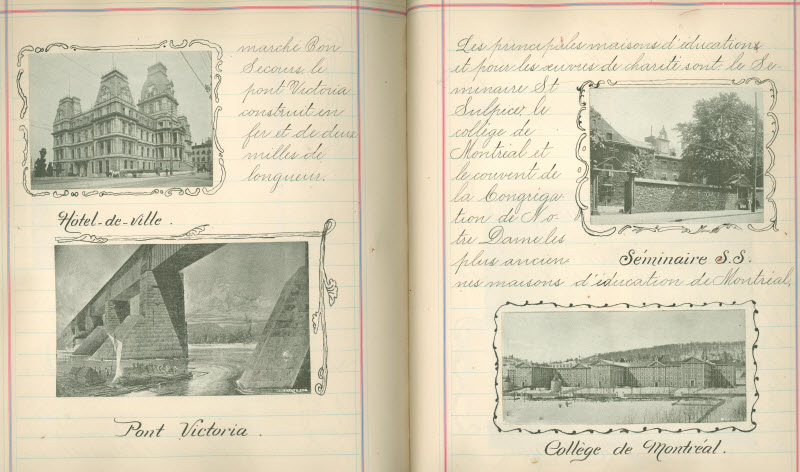 marché Bon
Secours, le
pont Victoria
construit en
fer et de deux
milles de
longueur.
Hôtel-de-ville.
Pont Victoria.
Les principales maisons d'éducations
et pour les œuvres de charité sont: le Sé-
minaire St
Sulpice, le
collège de
Montréal et
le couvent de
la Congréga
tion de No-
tre Dame les
plus ancien
nes maisons d'éducation de Montréal.
Séminaire S.S.
Collège de Montréal.